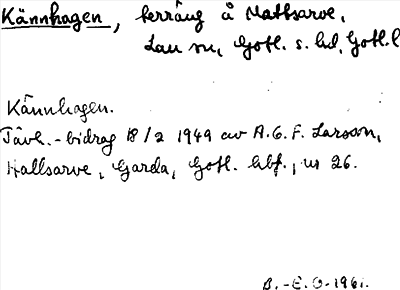 Kännhagen, terräng å Mattsarve,
Lau sn, Gotl. s. hd, Gotl. l
Kännhagen.
Tävl.-bidrag 18/2 1949 av A.G.F. Larsson,
Hallsarve, Garda, Gotl. hbf., nr 26.
B.-E. O. 1961.